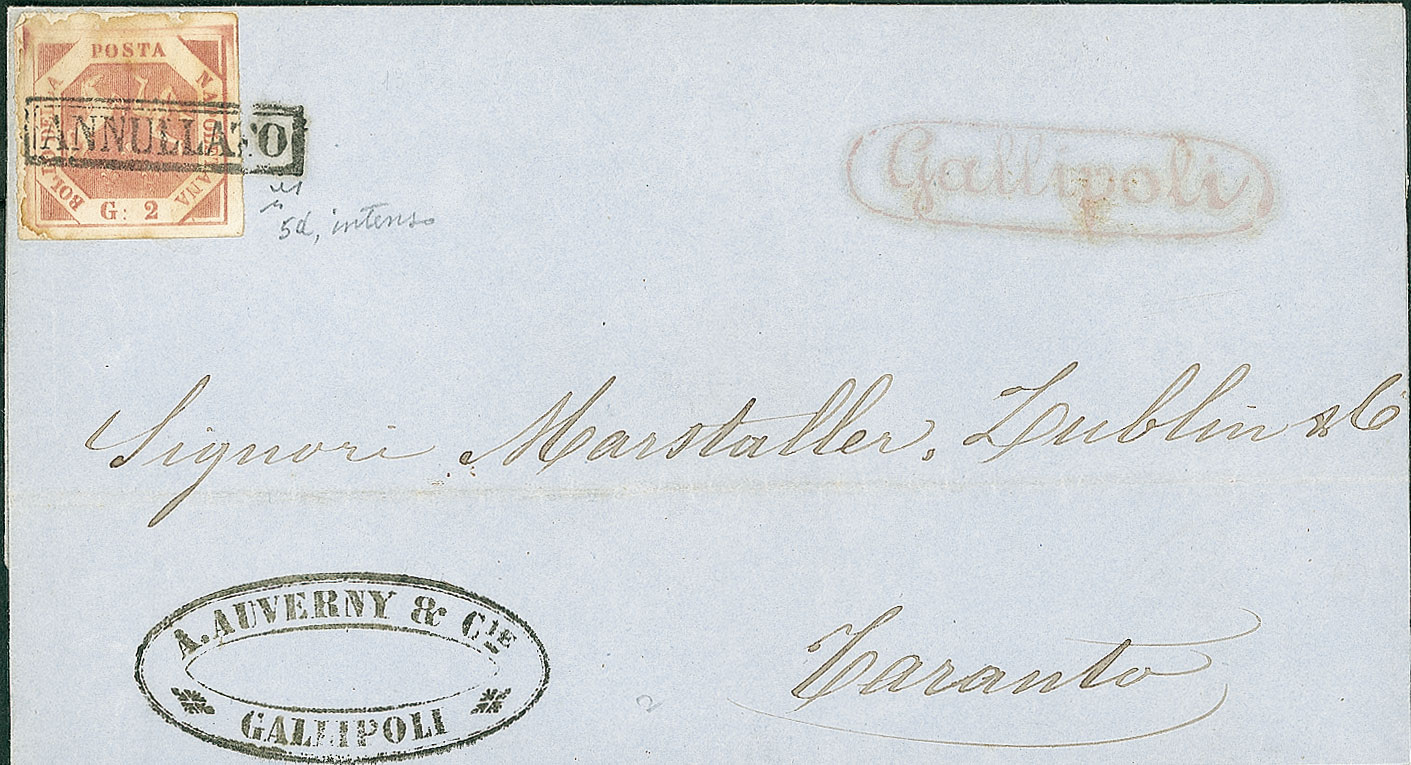 POSTA
NAPOLETANA
BOLLO DELLA
G: 2
ANNULLATO
5d, intenso
Gallipoli
Signori Marstaller, Lublin & C
A. AUVERNY & CIE
GALLIPOLI
Taranto
2